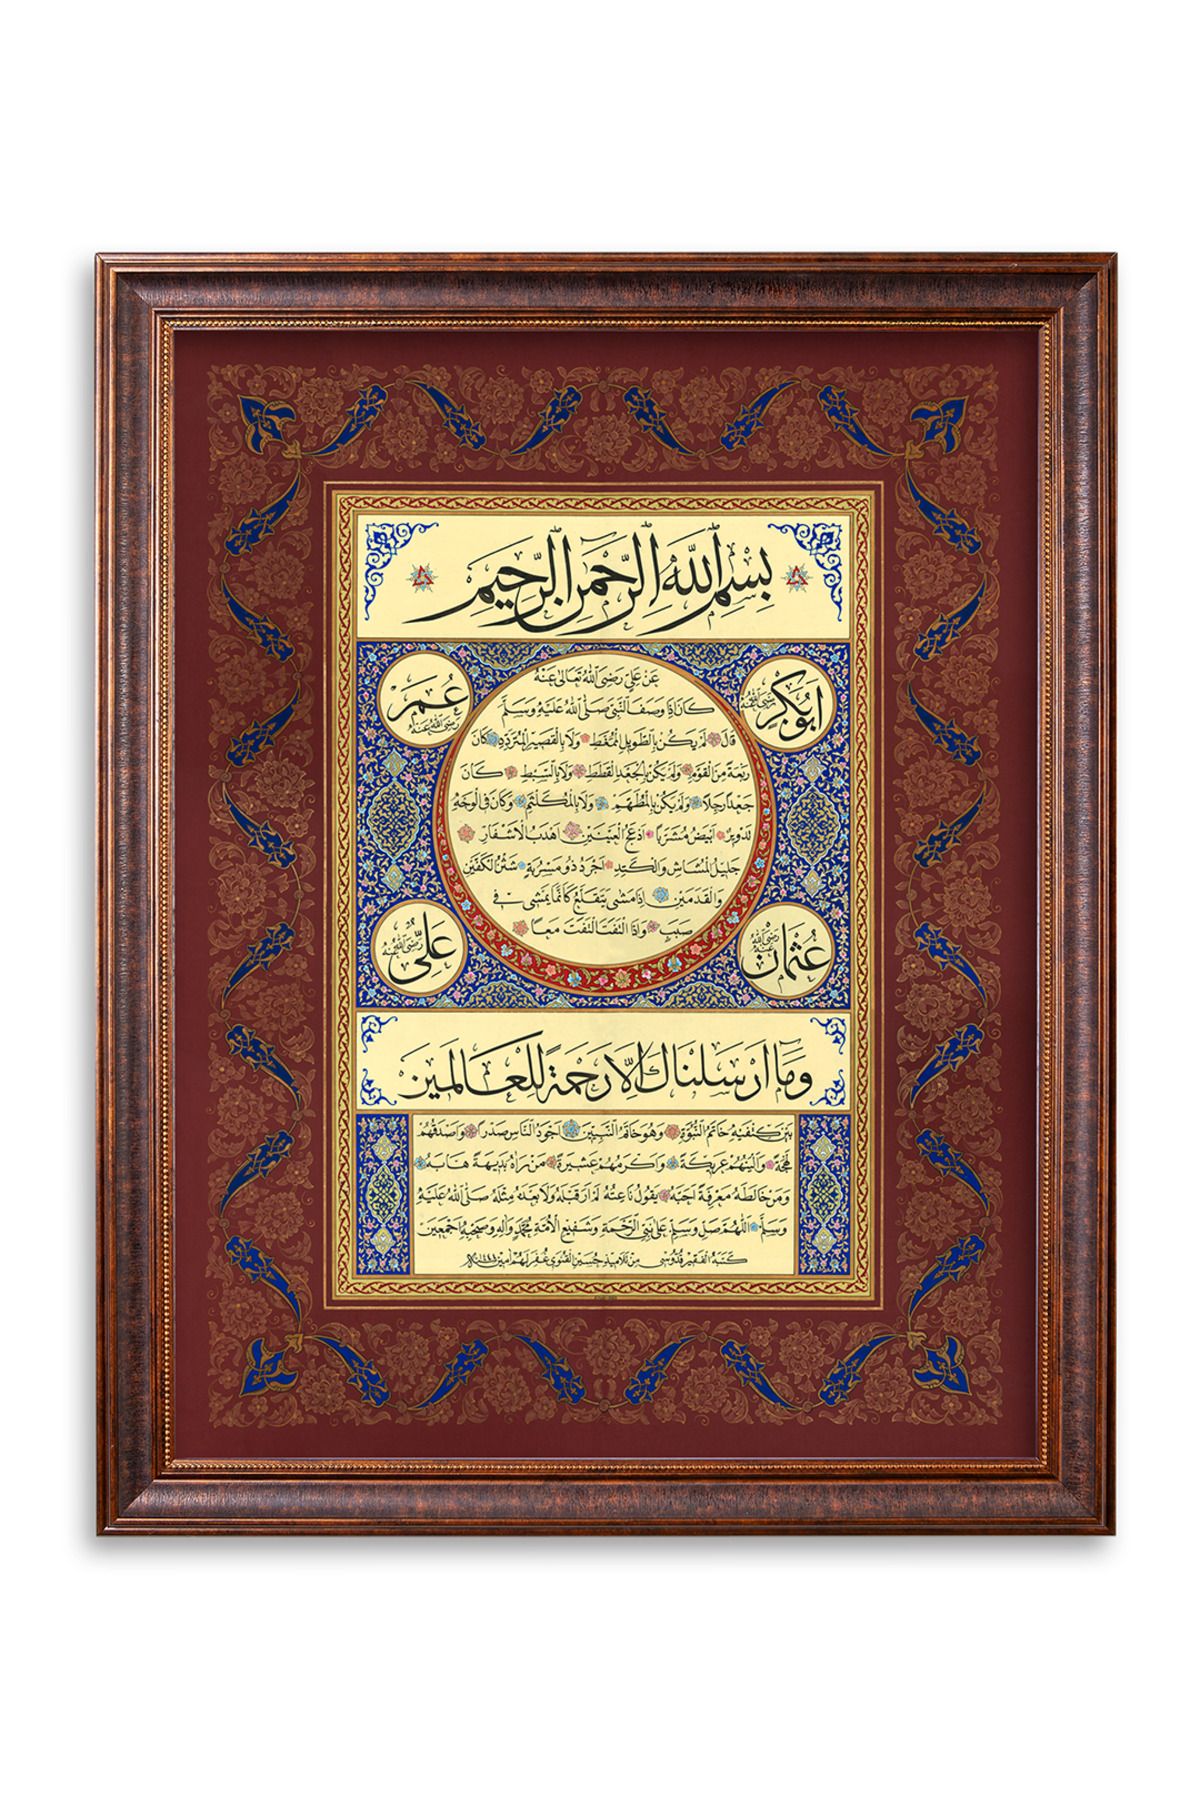 بِسْمِ اللهِ الرَّحْمٰنِ الرَّحِيمِ
اَبُو بَكْرٍ رَضِيَ اللهُ عَنْهُ
عُمَرُ رَضِيَ اللهُ عَنْهُ
عَنْ عَلِيٍّ رَضِيَ اللهُ تَعَالٰى عَنْهُ
كَانَ إِذَا وَصَفَ النَّبِيَّ صَلَّى اللهُ عَلَيْهِ وَسَلَّمَ
قَالَ لَمْ يَكُنْ بِالطَّوِيلِ الْمُمَّغِطِ وَلَا بِالْقَصِيرِ الْمُتَرَدِّدِ كَانَ
رَبْعَةً مِنَ الْقَوْمِ وَلَمْ يَكُنْ بِالْجَعْدِ الْقَطَطِ وَلَا بِالسَّبِطِ كَانَ
جَعْدًا رَجِلًا وَلَمْ يَكُنْ بِالْمُطَهَّمِ وَلَا بِالْمُكَلْثَمِ وَكَانَ فِي الْوَجْهِ
تَدْوِيرٌ اَبْيَضُ مُشْرَبًا اَدْعَجُ الْعَيْنَيْنِ اَهْدَبُ الْاَشْفَارِ
جَلِيلُ الْمُشَاشِ وَالْكَتَدِ اَجْرَدُ ذُو مَسْرُبَةٍ شَثْنُ الْكَفَّيْنِ
وَالْقَدَمَيْنِ اِذَا مَشٰى يَتَقَلَّعُ كَاَنَّمَا يَمْشِي فِي
صَبَبٍ وَاِذَا الْتَفَتَ الْتَفَتَ مَعًا
عُثْمَانُ رَضِيَ اللهُ عَنْهُ
عَلِيٌّ رَضِيَ اللهُ عَنْهُ
وَمَا اَرْسَلْنَاكَ اِلَّا رَحْمَةً لِلْعَالَمِينَ
بَيْنَ كَتِفَيْهِ خَاتَمُ النُّبُوَّةِ وَهُوَ خَاتَمُ النَّبِيِّينَ اَجْوَدُ النَّاسِ صَدْرًا وَاَصْدَقُهُمْ
لَهْجَةً وَاَلْيَنُهُمْ عَرِيكَةً وَاَكْرَمُهُمْ عَشِيرَةً مَنْ رَاٰهُ بَدِيهَةً هَابَهُ
وَمَنْ خَالَطَهُ مَعْرِفَةً اَحَبَّهُ يَقُولُ نَاعِتُهُ لَمْ اَرَ قَبْلَهُ وَلَا بَعْدَهُ مِثْلَهُ صَلَّى اللهُ عَلَيْهِ
وَسَلَّمَ اَللّٰهُمَّ صَلِّ وَسَلِّمْ عَلٰى نَبِيِّ الرَّحْمَةِ وَشَفِيعِ الْاُمَّةِ مُحَمَّدٍ وَاٰلِهِ وَصَحْبِهِ اَجْمَعِينَ
كَتَبَهُ الْفَقِيرُ قُدُّوسِي مِنْ تَلَامِيذِ حُسَيْنِ الْقُتُوِي غُفِرَ لَهُمْ اٰمِين